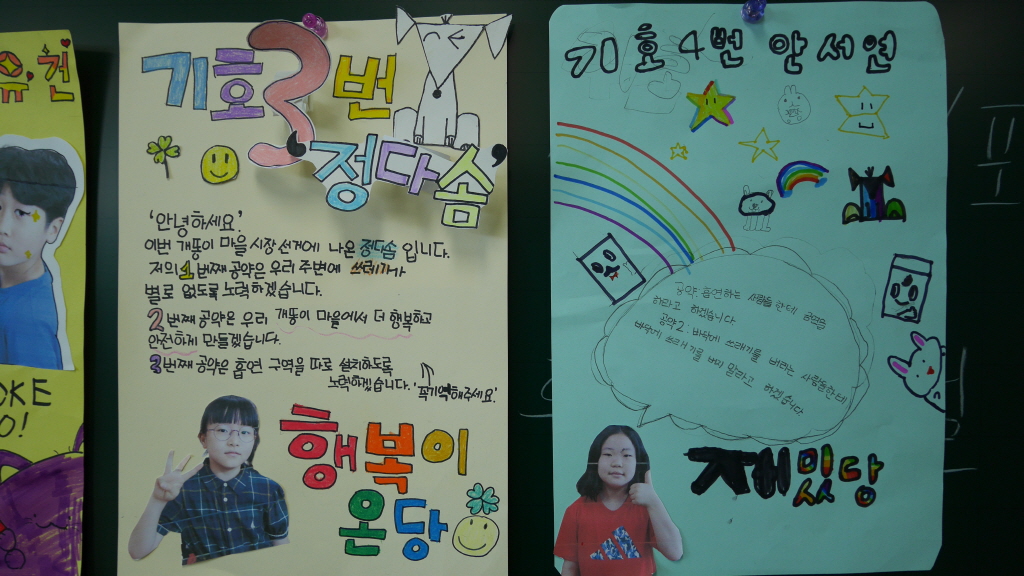 유건
OKE
O!
기호 3번
정다솜
'안녕하세요'.
이번 개똥이 마을 시장 선거에 나온 정다솜 입니다.
저의 1번째 공약은 우리 주변에 쓰레기가
별로 없도록 노력하겠습니다.
2번째 공약은 우리 개똥이 마을에서 더 행복하고
안전하게 만들겠습니다.
3번째 공약은 흡연 구역을 따로 설치하도록
노력하겠습니다. '꼭기억해주세요'.
행복이
온당
기호 4번 안서연
공약: 흡연하는 사람들 한테 금연을
하라고 하겠습니다.
공약2: 바닥에 쓰래기를 버리는 사람들한테
바닥에 쓰래기를 버리 말라고 하겠습니다
재밌당